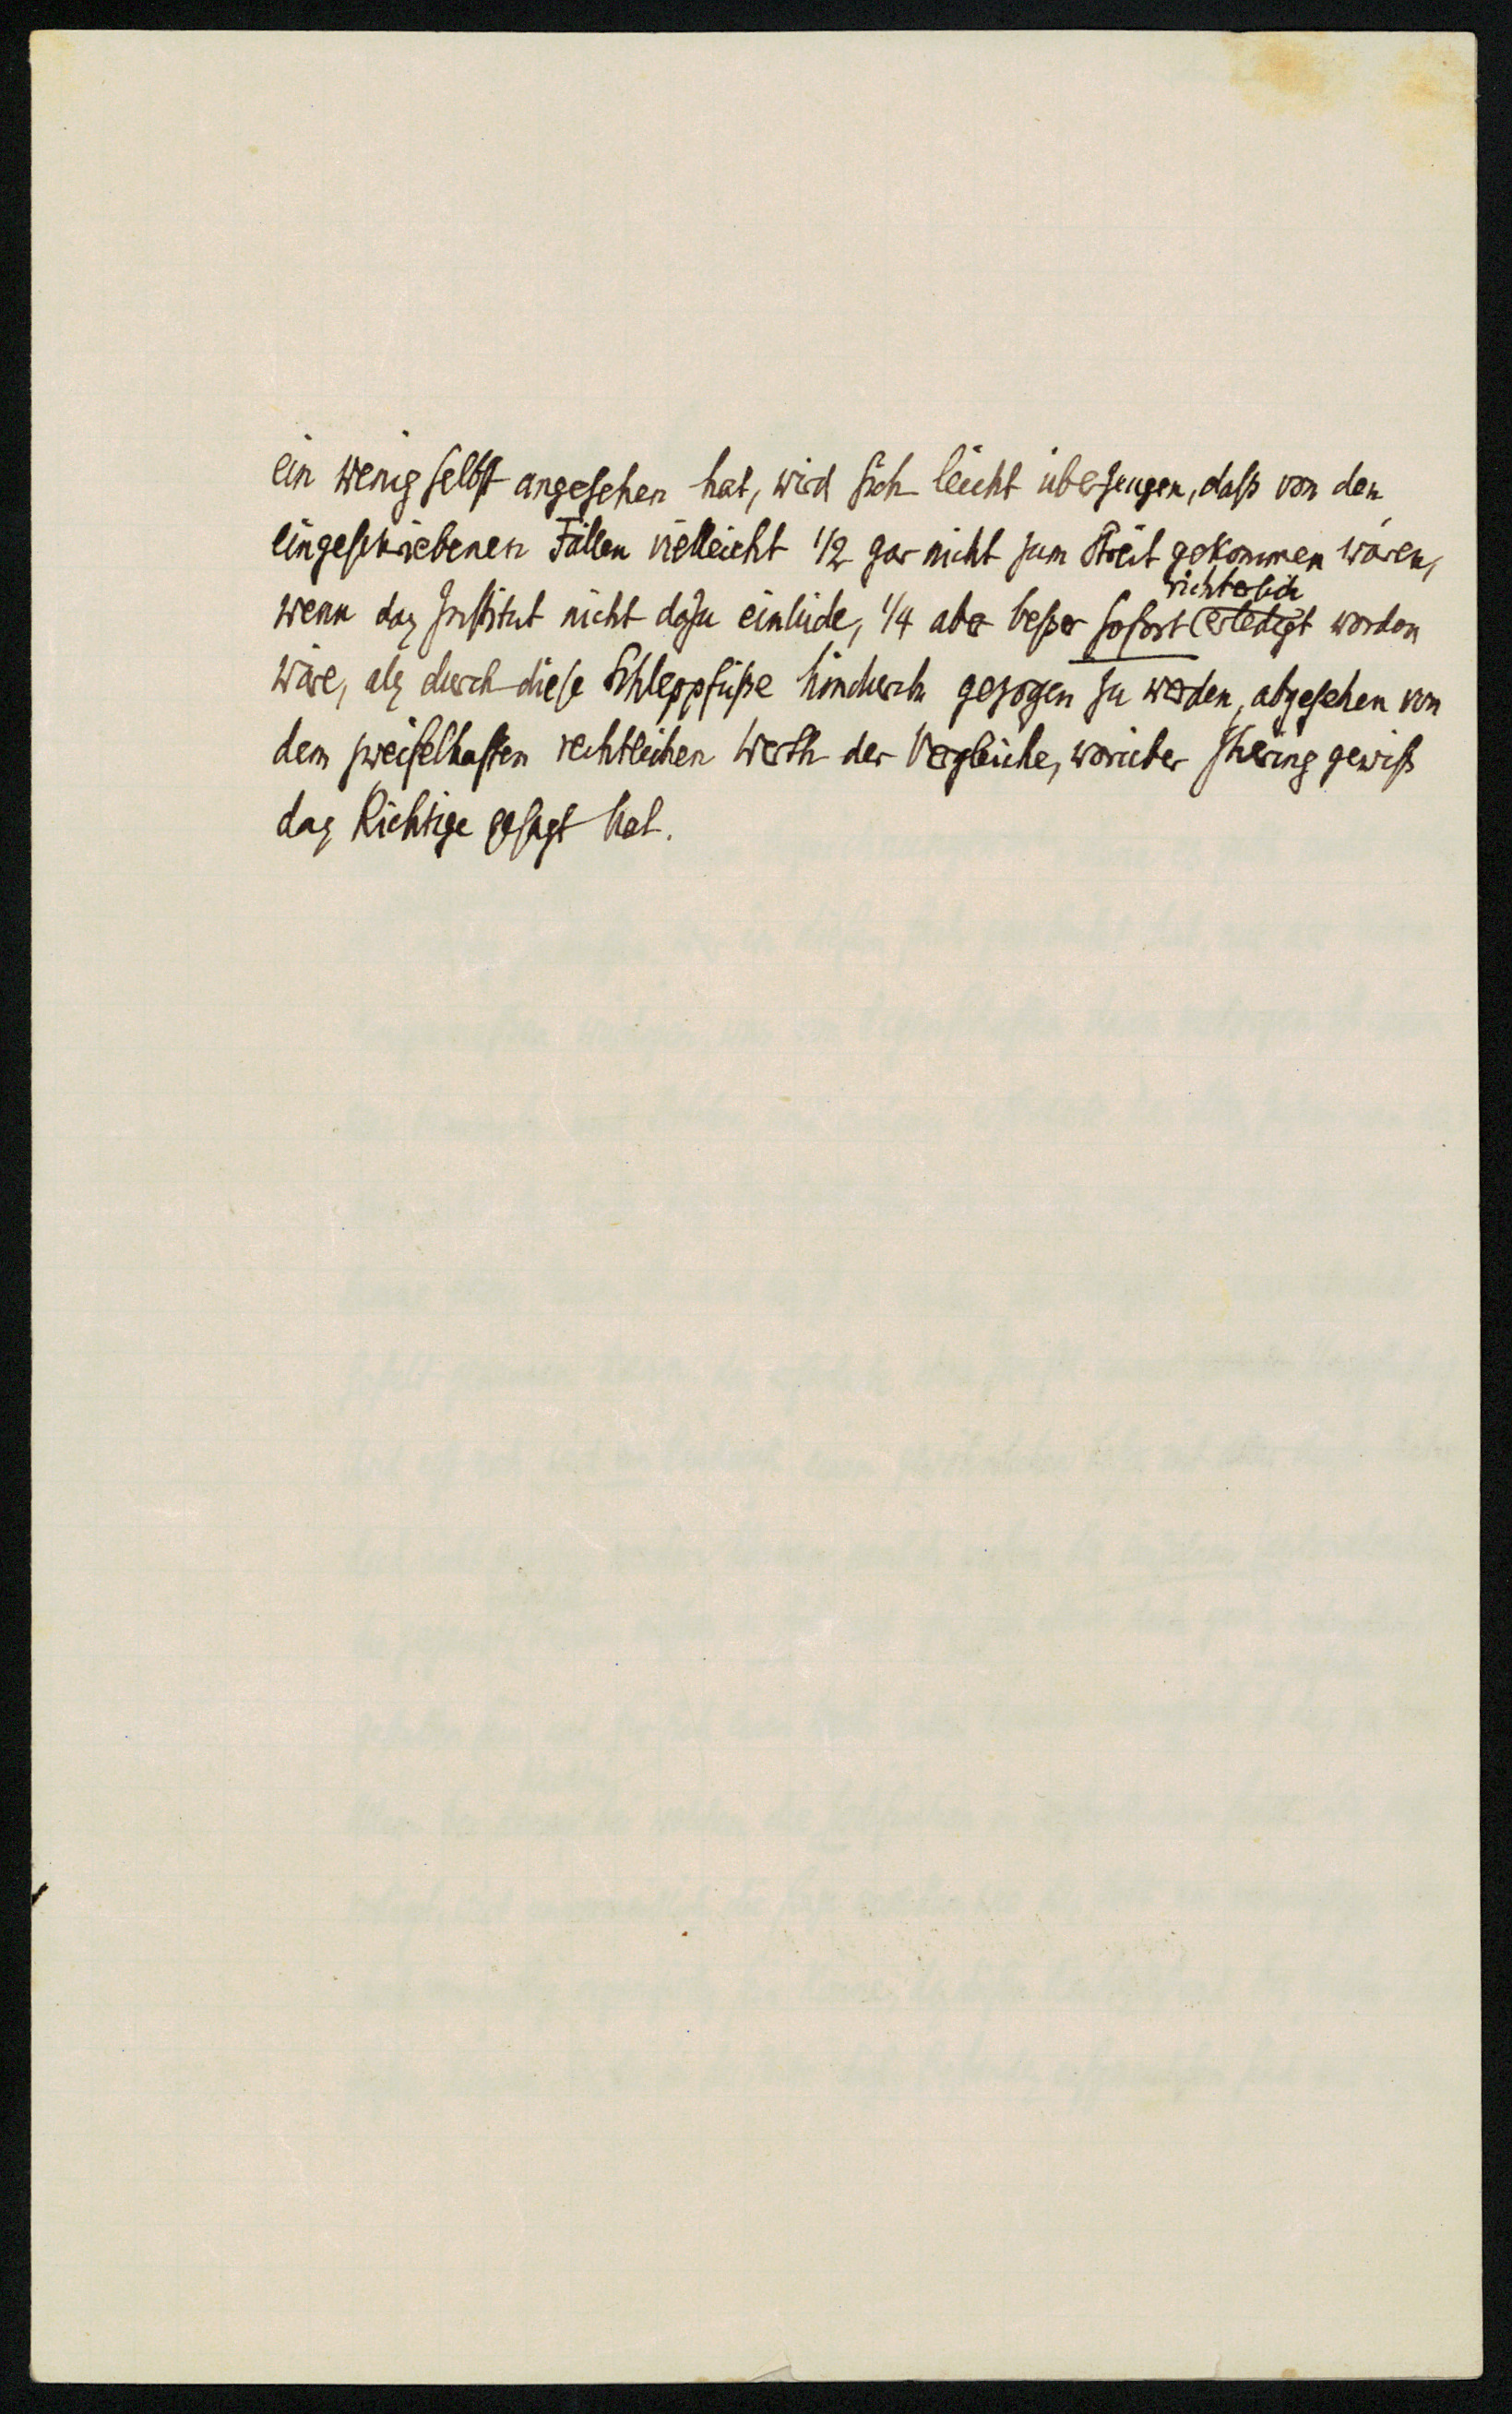 ein wenig selbst angesehen hat, wird sich leicht überzeugen, dass von den
eingeschriebenen Fällen vielleicht 1/2 gar nicht zum Streit gekommen wären,
richterlich
wenn das Institut nicht dazu einlüde, 1/4 aber besser sofort erledigt worden
wäre, als durch diese Schleppfüsse hindurch gezogen zu werden, abgesehen von
dem zweifelhaften rechtlichen Werth der Vergleiche, worüber Ihering gewiss
das Richtige gesagt hat.